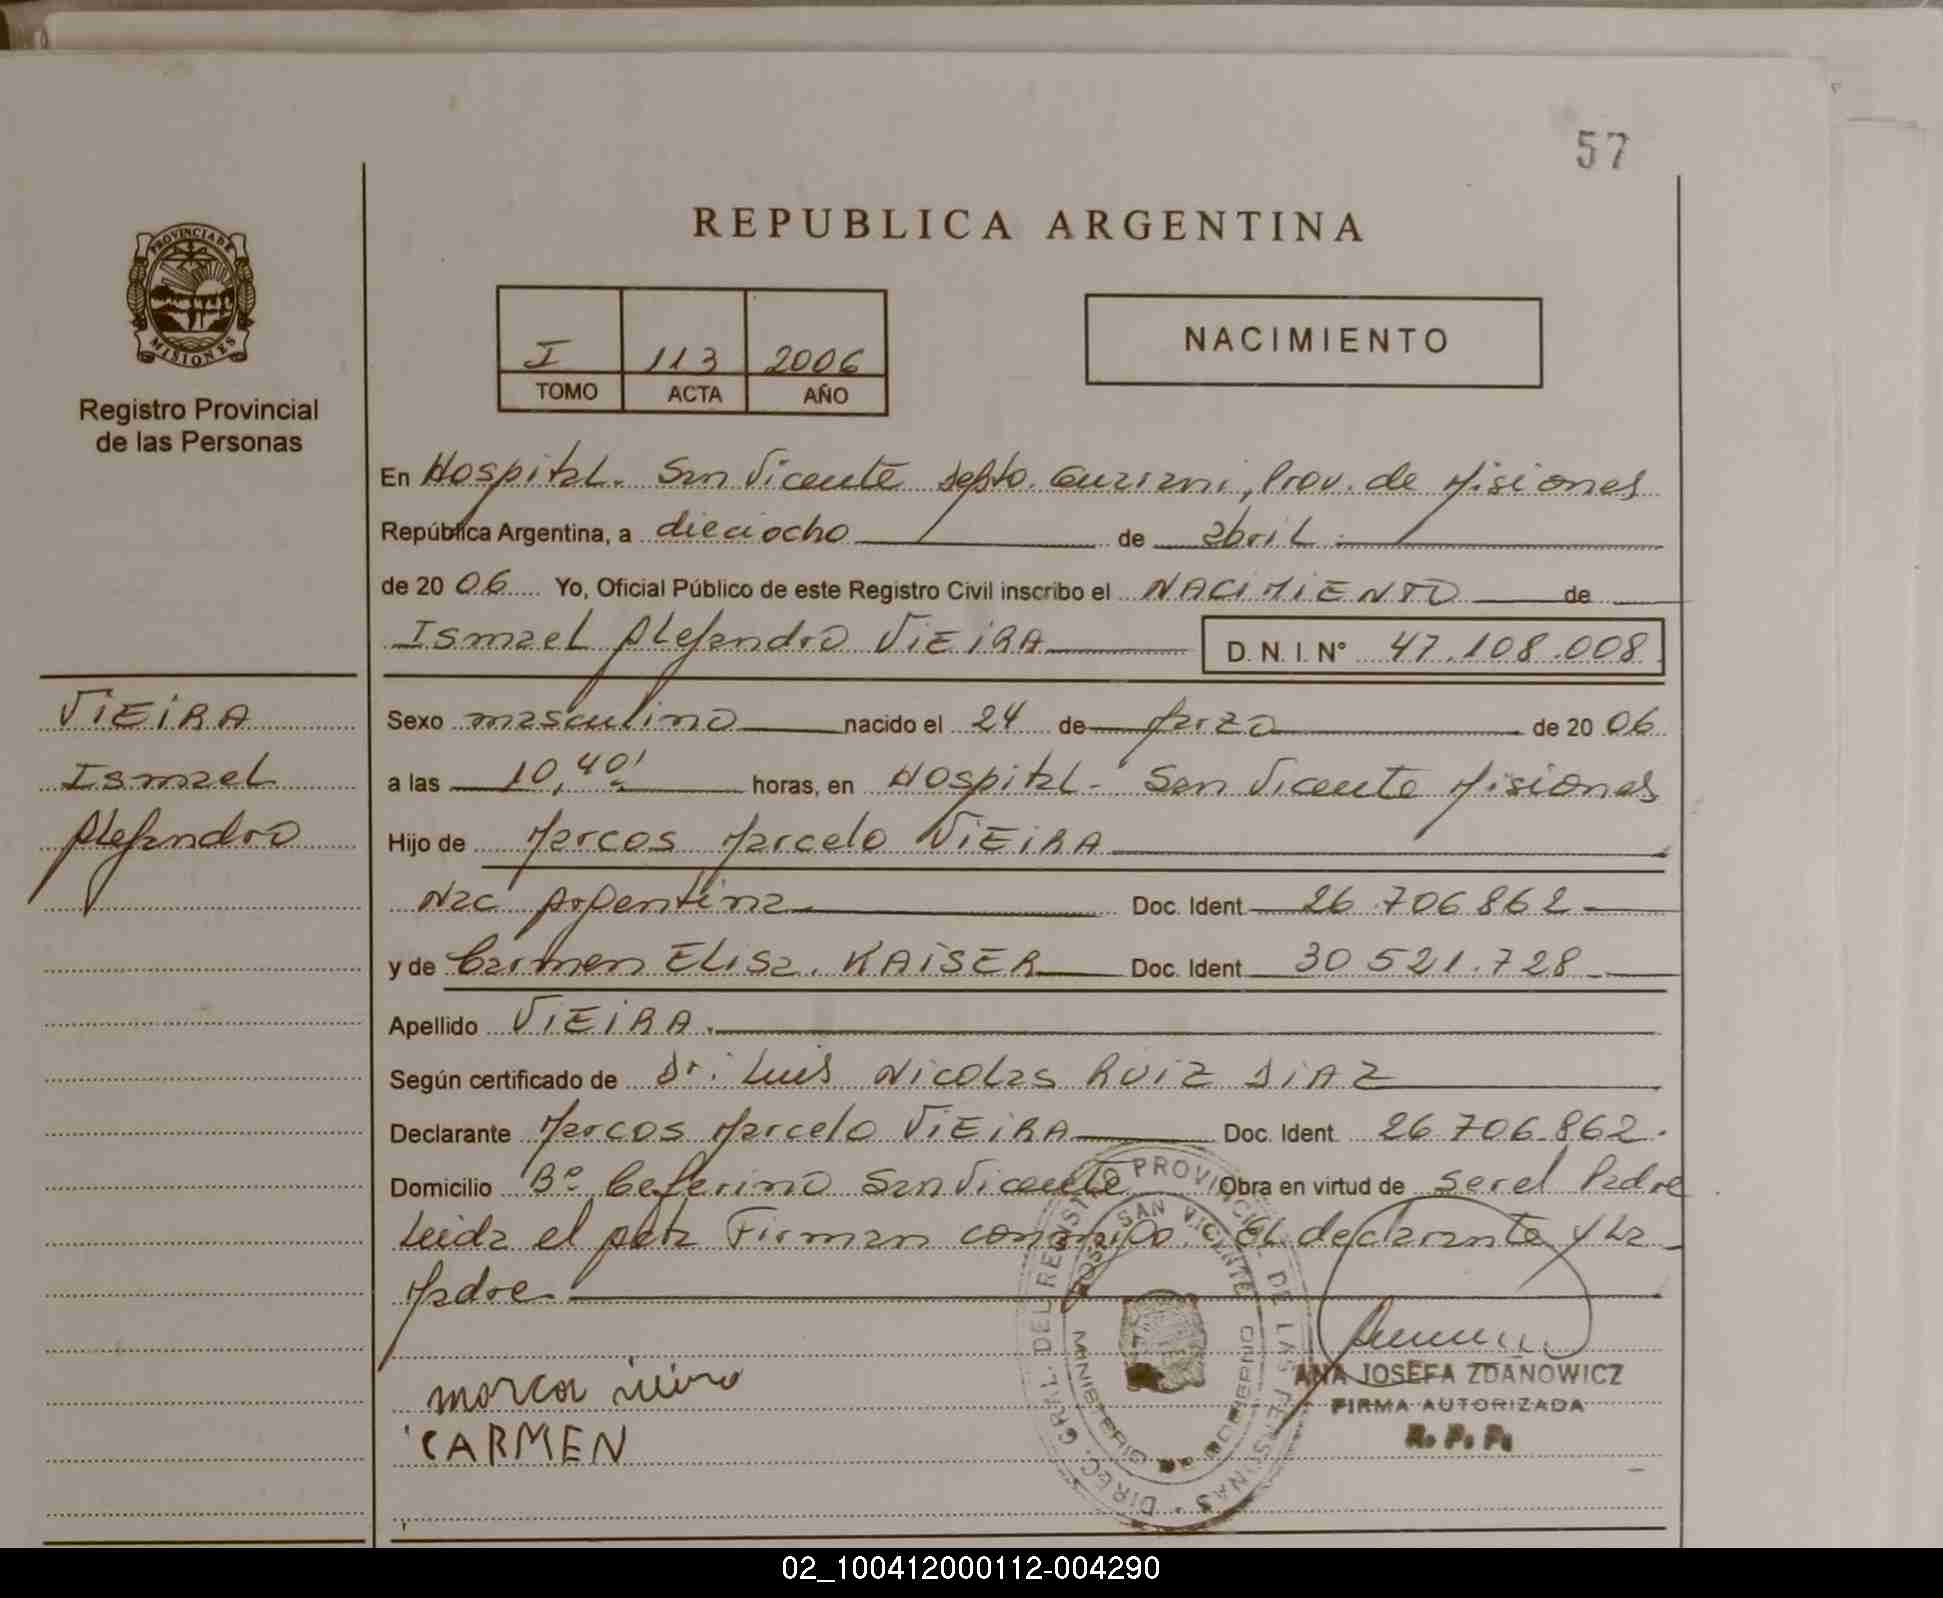 57
REPUBLICA ARGENTINA
PROVINCIA DE
MISIONES
Registro Provincial
de las Personas
I 113 2006
TOMO ACTA AÑO
NACIMIENTO
En Hospital. San Vicente depto. Guarani, Prov. de Misiones
República Argentina, a dieciocho de abril
de 20 06 Yo, Oficial Público de este Registro Civil inscribo el NACIMIENTO de
Ismael Alejandro VIEIRA D. N. I. N° 47.108.008
VIEIRA
Ismael
Alejandro
Sexo masculino nacido el 24 de Marzo de 20 06
a las 10,40' horas, en Hospital - San Vicente Misiones
Hijo de Marcos Marcelo VIEIRA
Nac Argentina Doc. Ident 26.706.862
y de Carmen Elisa. KAISER Doc. Ident 30.521.728
Apellido VIEIRA.
Según certificado de Dr: Luis Nicolas RUIZ DIAZ
Declarante Marcos Marcelo VIEIRA Doc. Ident. 26.706.862.
Domicilio B° Ceferino San Vicente Obra en virtud de ser el Padre
Leida el acta Firman conmigo. El declarante y La
Madre
DIREC. GRAL. DEL REGISTRO PROVINCIAL DE LAS PERSONAS
SAN VICENTE
MINISTERIO DE GOBIERNO
CARMEN
ANA JOSEFA ZDANOWICZ
FIRMA AUTORIZADA
R. P. P.
02_100412000112-004290